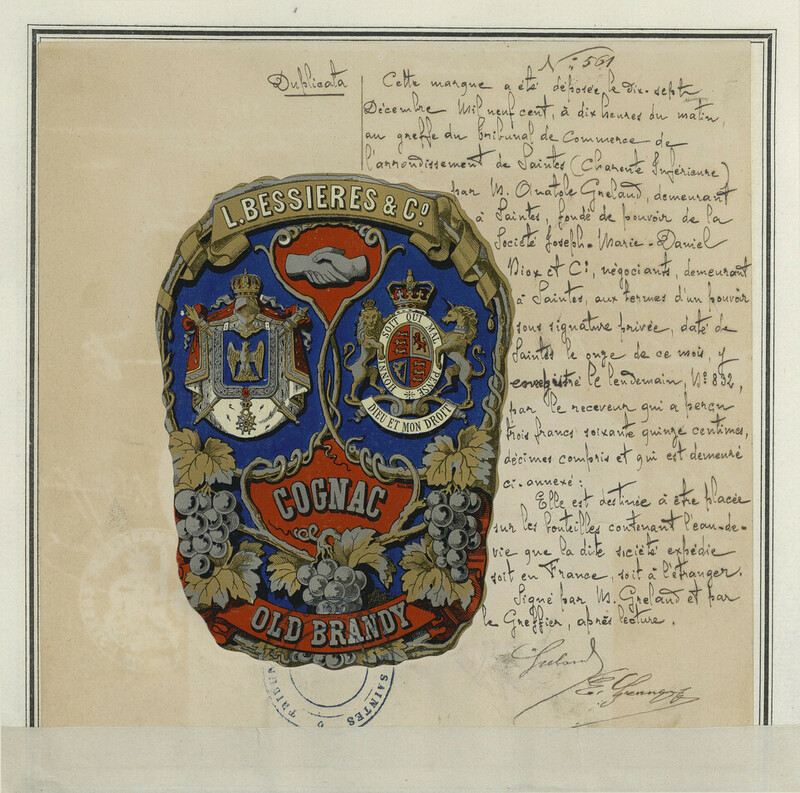 Nº: 561
Duplicata
Cette marque a été déposée le dix-sept
Décembre Mil neuf cent, à dix heures du matin,
au greffe du Tribunal de Commerce de
l'arrondissement de Saintes (Charente Inférieure)
par M. Anatole Greland, demeurant
à Saintes, fondé de pouvoir de la
Société Joseph-Marie-Daniel
et Cº, négociants, demeurant
à Saintes, aux termes d'un pouvoir
sous signature privée, daté de
Saintes le onze de ce mois, y
enregistré le lendemain, Nº 832,
par le receveur qui a perçu
trois francs soixante quinze centimes,
décimes compris et qui est demeuré
ci-annexé:
Elle est destinée à être placée
sur les bouteilles contenant l'eau-de-
vie que la dite société expédie
soit en France, soit à l'étranger.
Signé par M. Greland et par
le Greffier, après lecture.
Greland
L. BESSIERES & Cº
HONNI SOIT QUI MAL Y PENSE
DIEU ET MON DROIT
COGNAC
OLD BRANDY
TRIBU
SAINTES